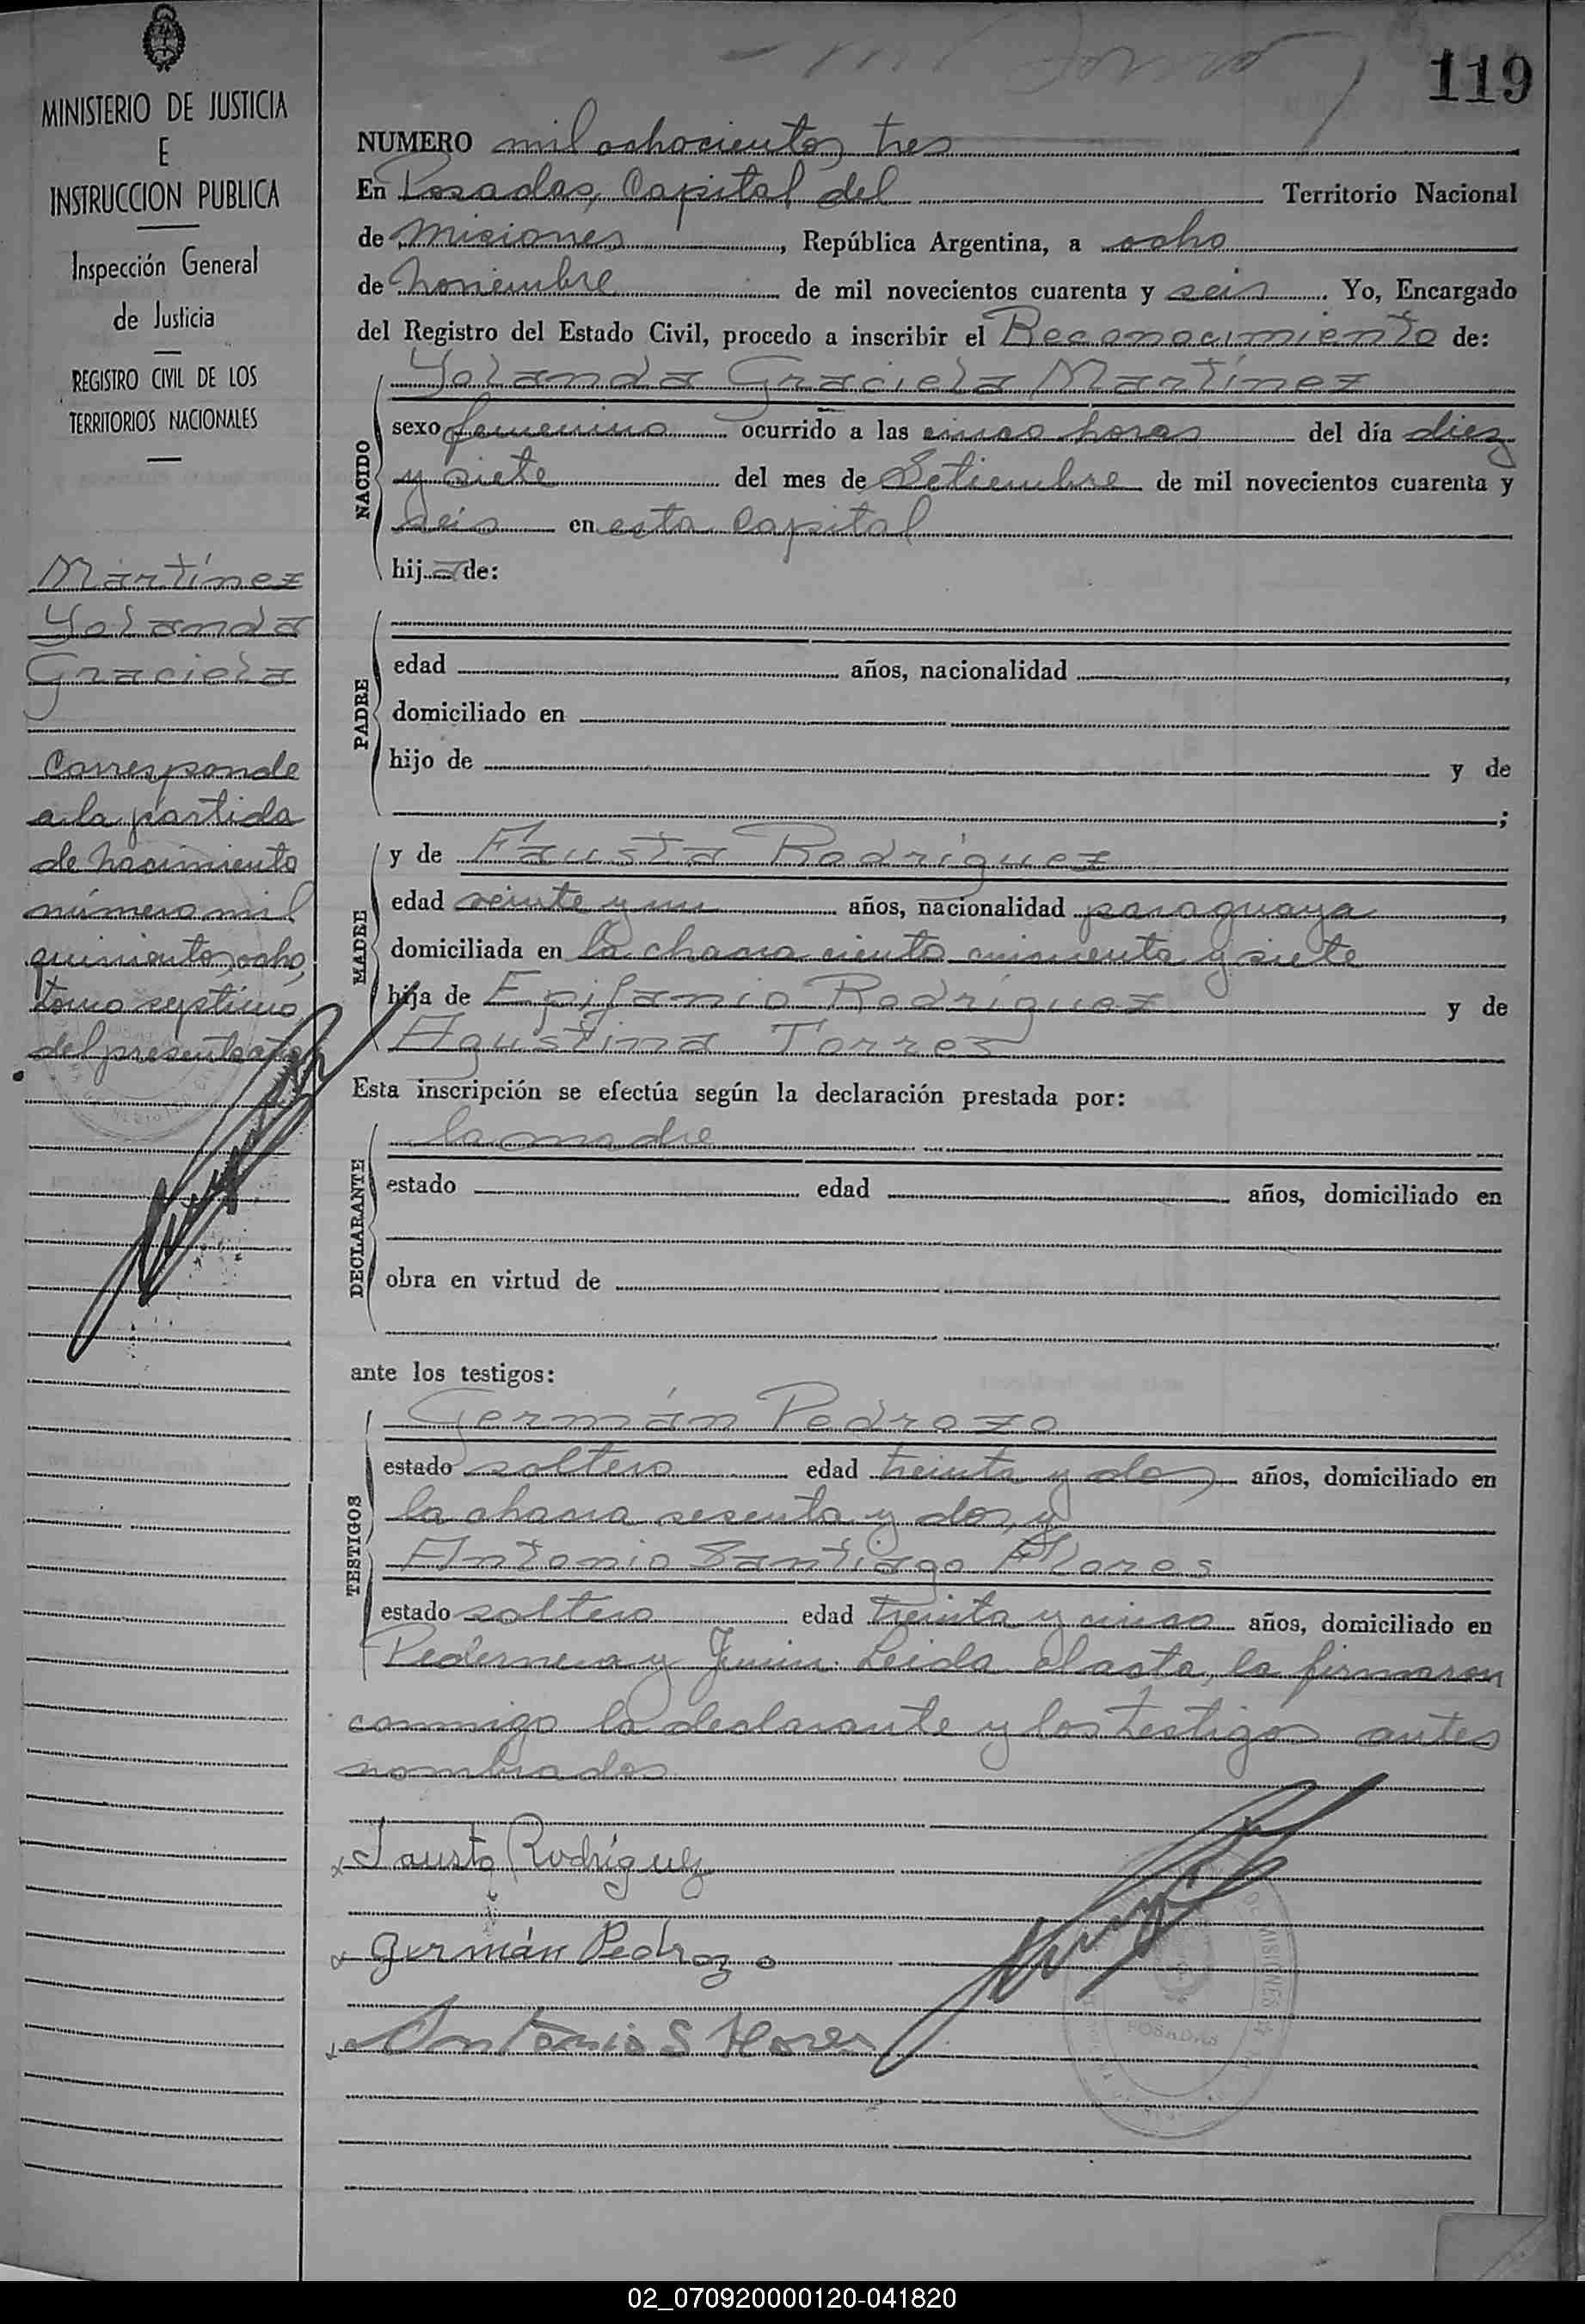 119
MINISTERIO DE JUSTICIA
E
INSTRUCCION PUBLICA
Inspección General
de Justicia
REGISTRO CIVIL DE LOS
TERRITORIOS NACIONALES
Martínez
Yolanda
Graciela
Corresponde
a la partida
de nacimiento
número mil
quinientos ocho,
tomo septimo
del presente año
NUMERO mil ochocientos tres
En Posadas, Capital del Territorio Nacional
de Misiones, República Argentina, a ocho
de Noviembre de mil novecientos cuarenta y seis. Yo, Encargado
del Registro del Estado Civil, procedo a inscribir el Reconocimiento de:
NACIDO
Yolanda Graciela Martínez
sexo femenino ocurrido a las cinco horas del día diez
y siete del mes de Setiembre de mil novecientos cuarenta y
seis en esta Capital
hija de:
PADRE
edad años, nacionalidad ,
domiciliado en
hijo de y de
;
MADRE
y de Fausta Rodríguez
edad veinte y un años, nacionalidad paraguaya,
domiciliada en la chacra ciento cincuenta y siete
hija de Epifanio Rodríguez y de
Agustina Torres
Esta inscripción se efectúa según la declaración prestada por:
DECLARANTE
la madre
estado edad años, domiciliado en
obra en virtud de
ante los testigos:
TESTIGOS
Germán Pedrozo
estado soltero edad treinta y dos años, domiciliado en
la chacra sesenta y dos, y
Antonio Santiago Flores
estado soltero edad treinta y cinco años, domiciliado en
Pedernera y Junin. Leida el acta, la firmaron
conmigo la declarante y los testigos antes
nombrados
x Fausta Rodríguez
x Germán Pedrozo
x Antonio S Flores
POSADAS
02_070920000120-041820